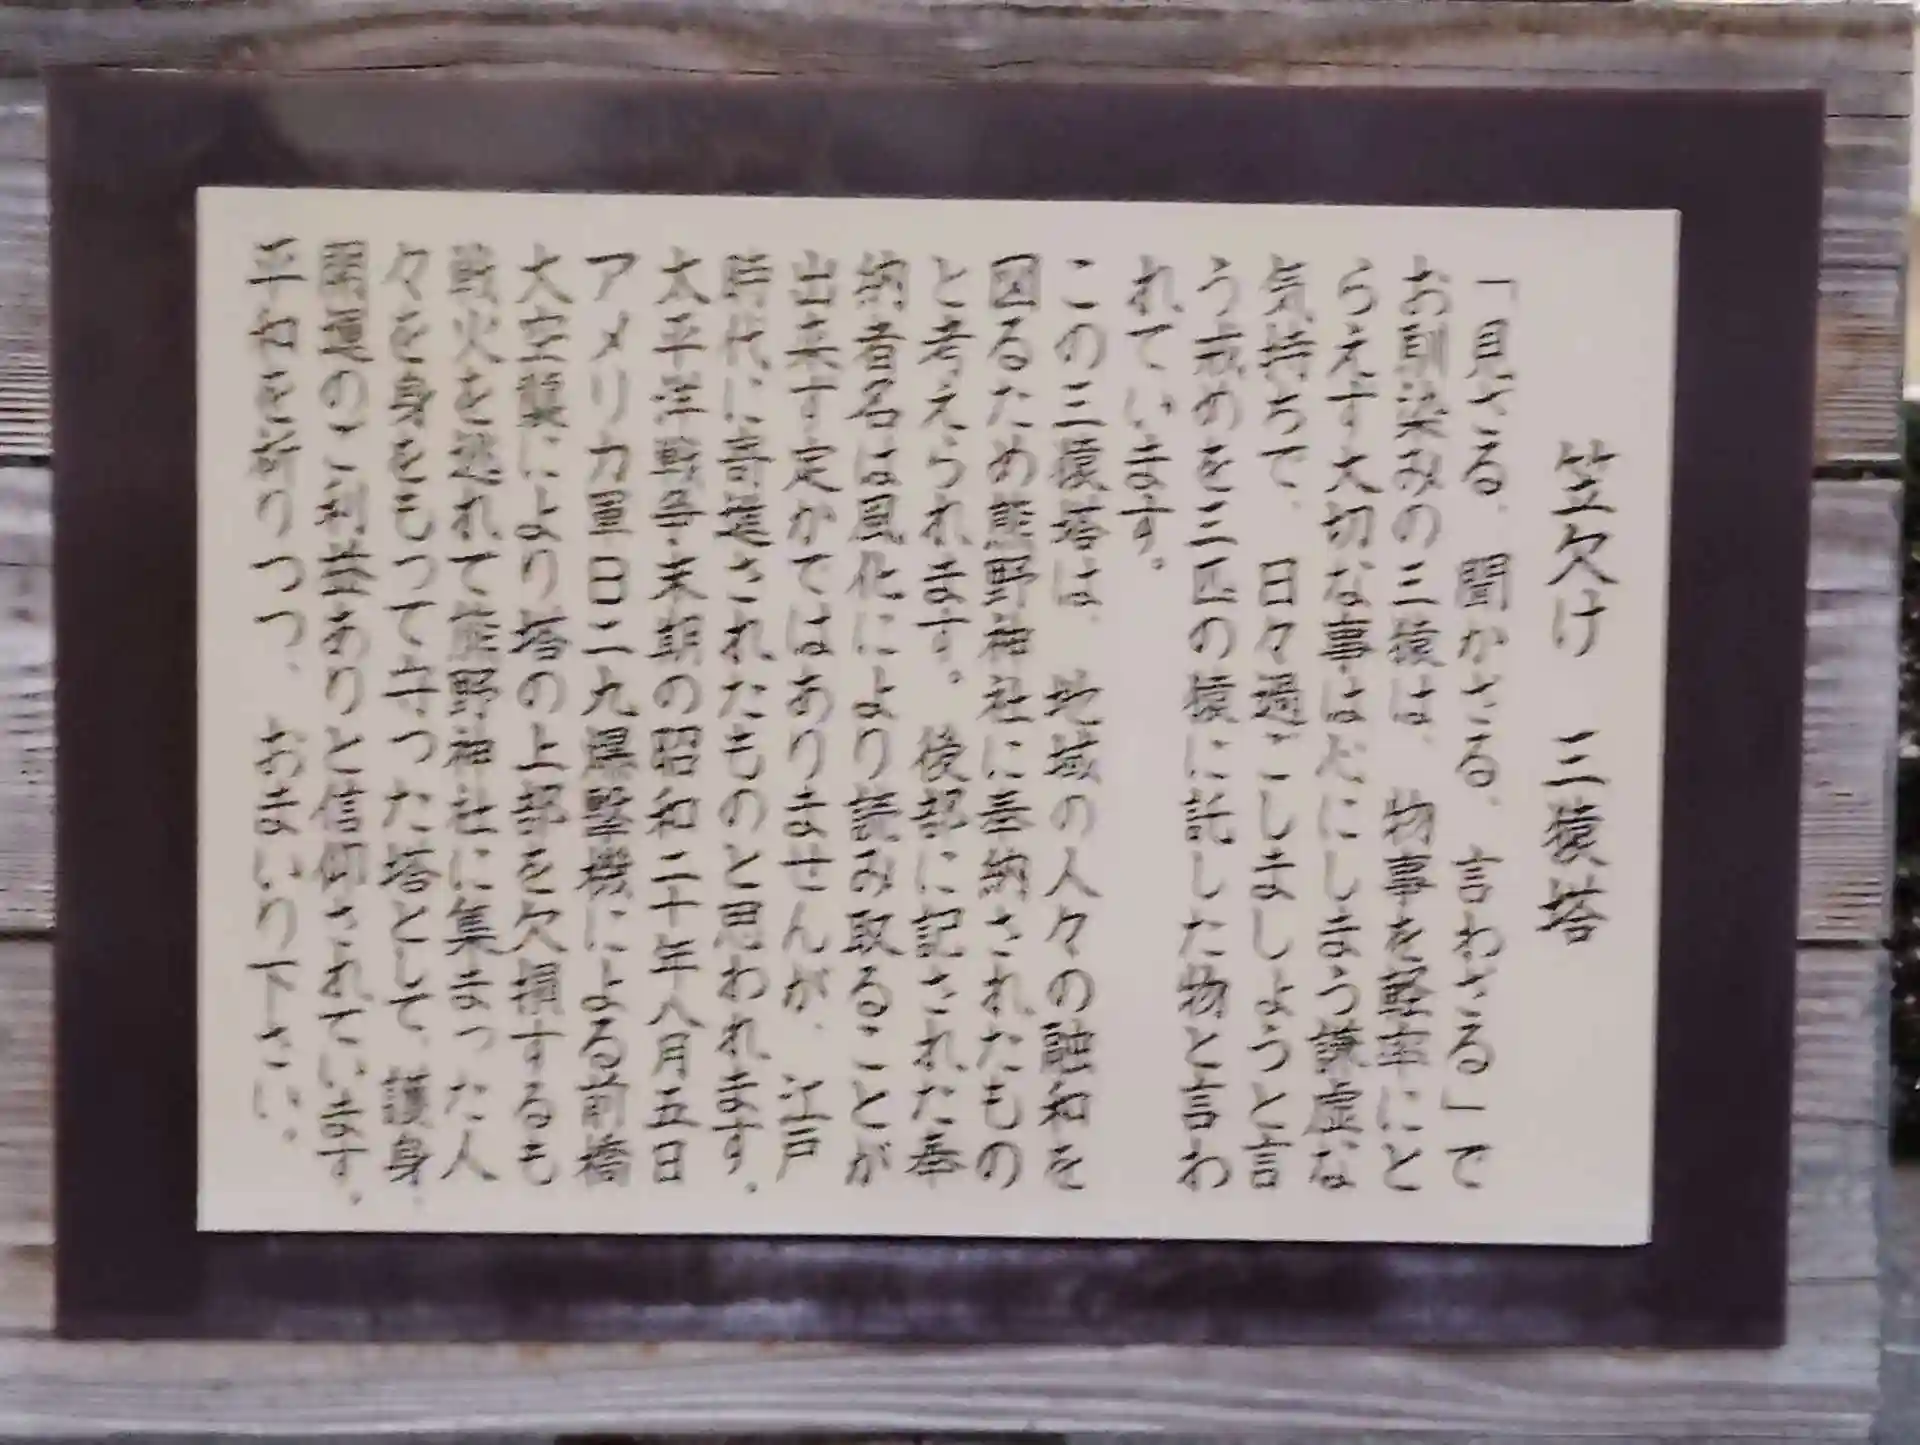 笠欠け　三猿塔
「見ざる、聞かざる、言わざる」で
お馴染みの三猿は、物事を軽率にと
らえず大切な事はだにしまう謙虚な
気持ちで、日々過ごしましょうと言
う戒めを三匹の猿に託した物と言わ
れています。
この三猿塔は、地域の人々の融和を
図るため熊野神社に奉納されたもの
と考えられます。後部に記された奉
納者名は風化により読み取ることが
出来ず定かではありませんが、江戸
時代に寄進されたものと思われます。
太平洋戦争末期の昭和二十年八月五日
アメリカ軍B二九爆撃機による前橋
大空襲により塔の上部を欠損するも
戦火を逃れて熊野神社に集まった人
々を身をもって守った塔として、護身、
開運のご利益ありと信仰されています。
平和を祈りつつ、おまいり下さい。